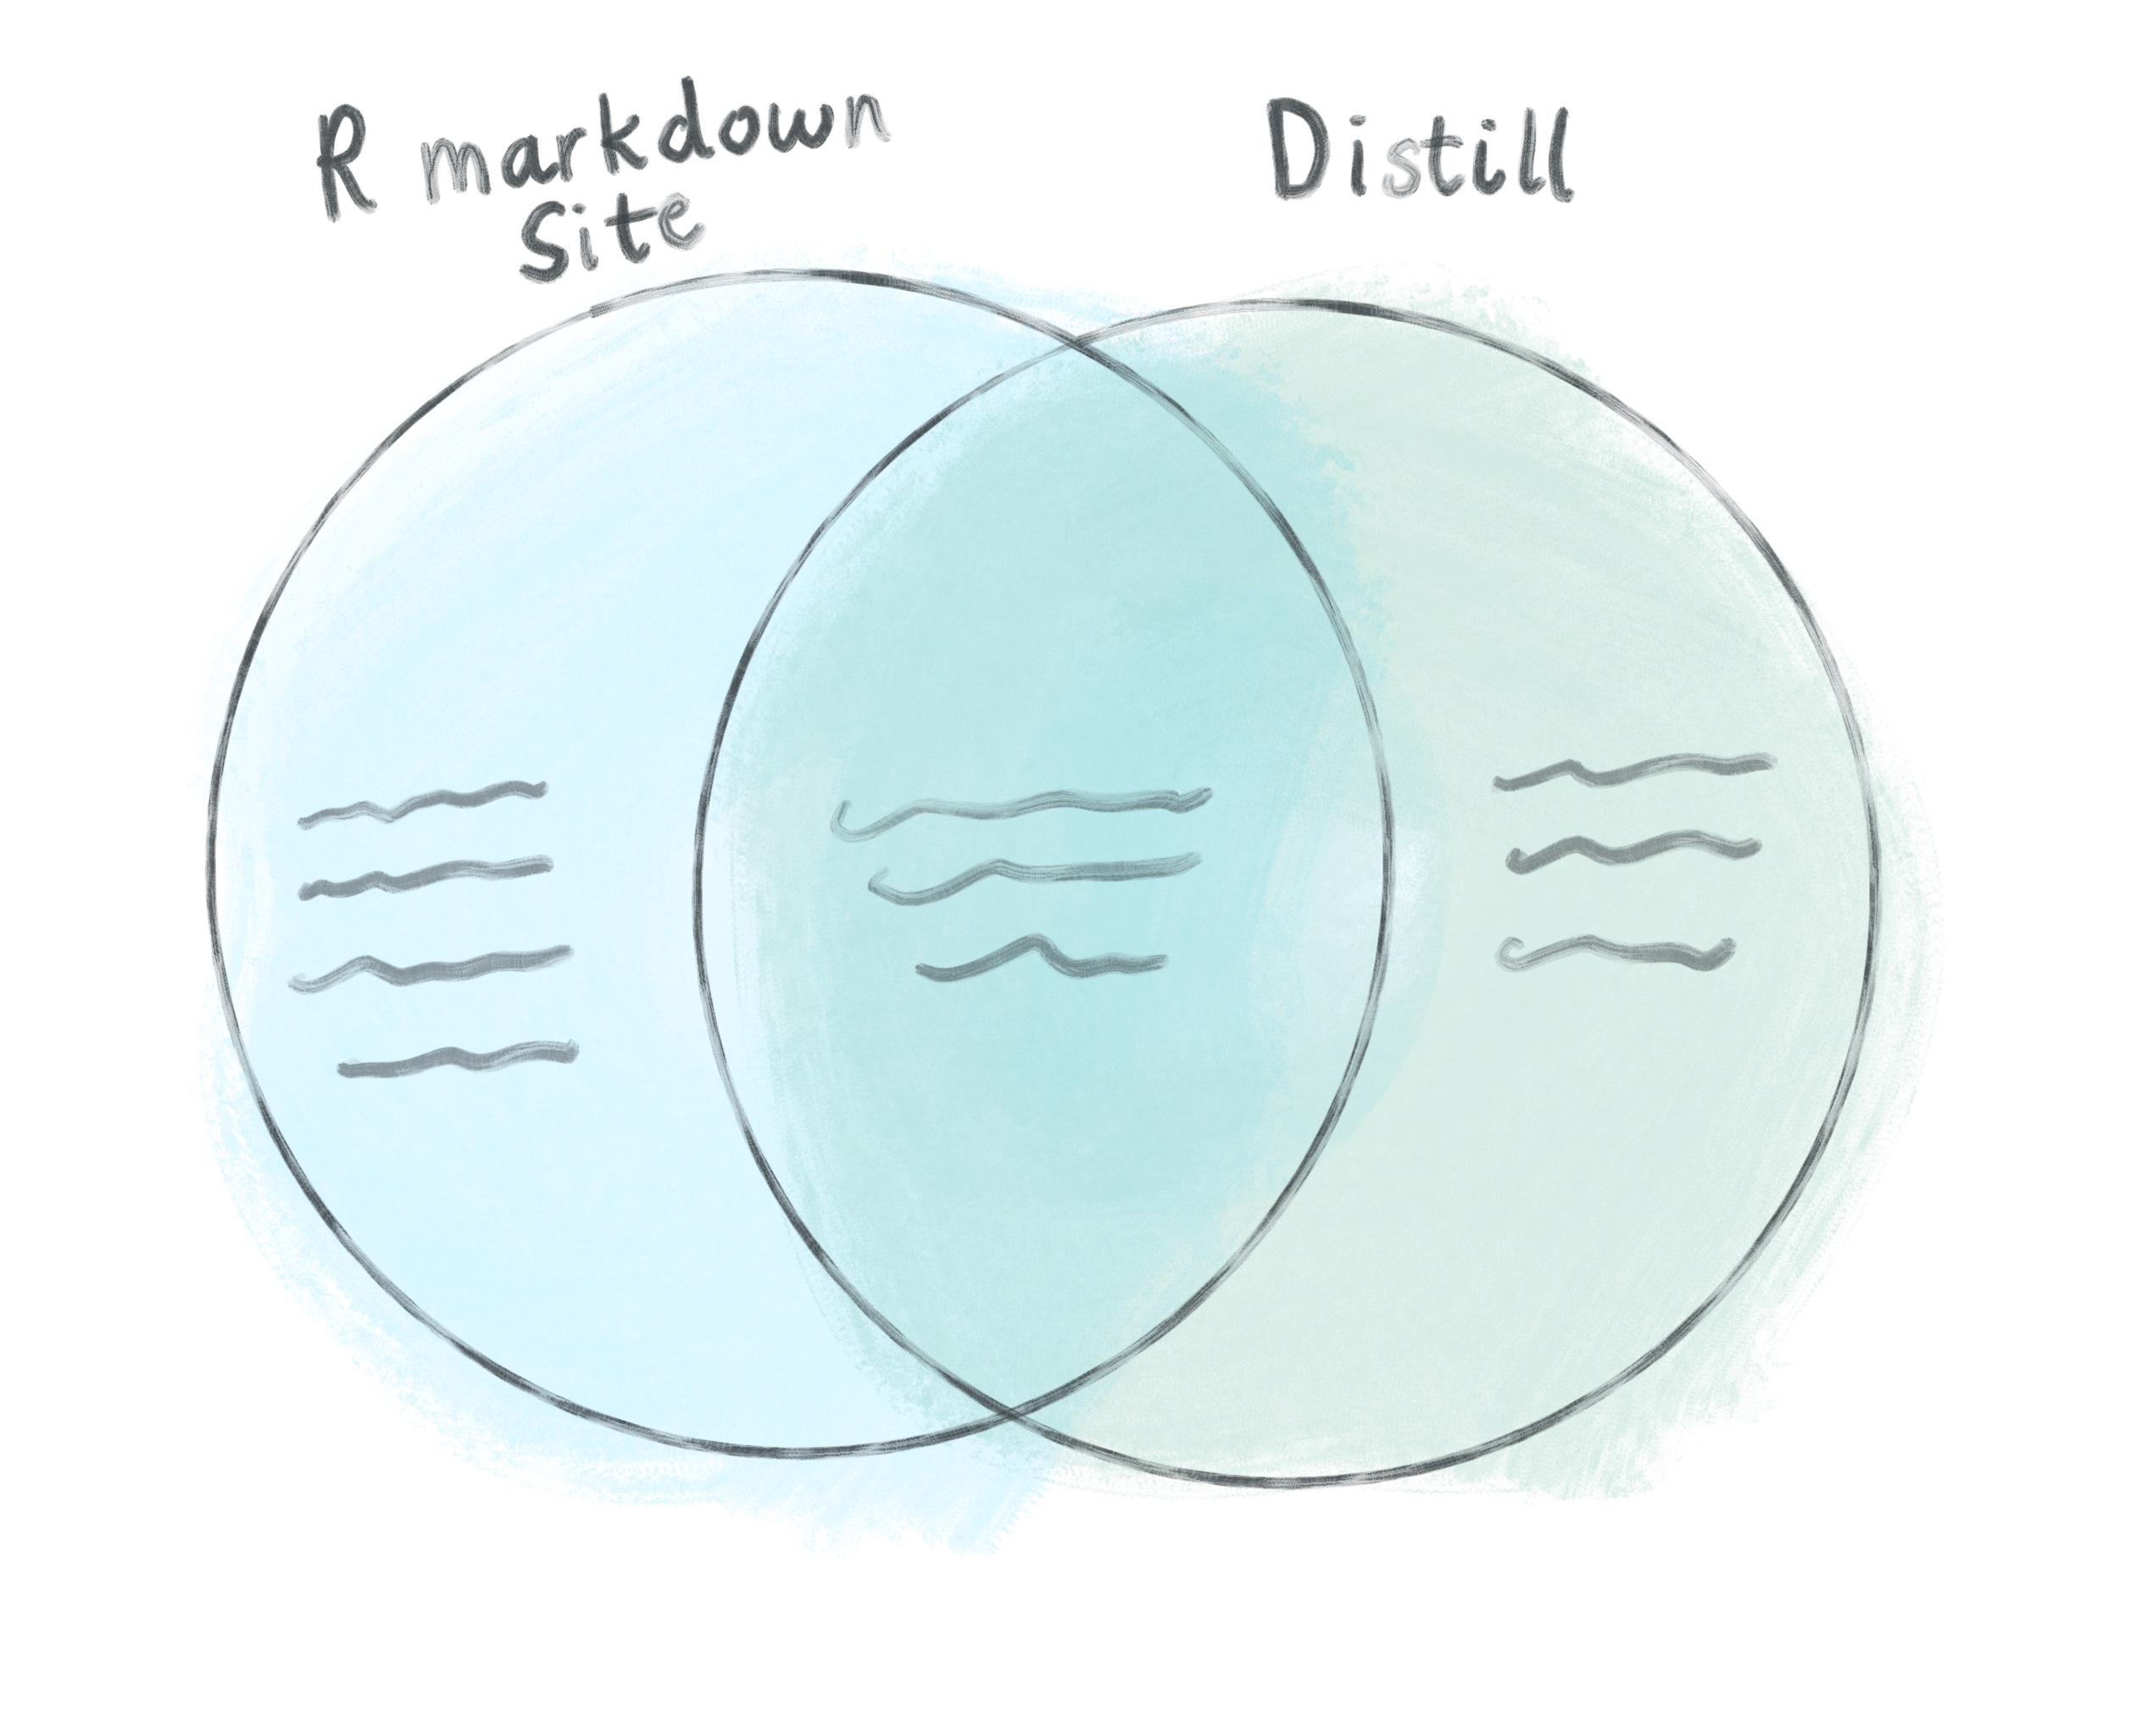 R markdown
Site
Distill